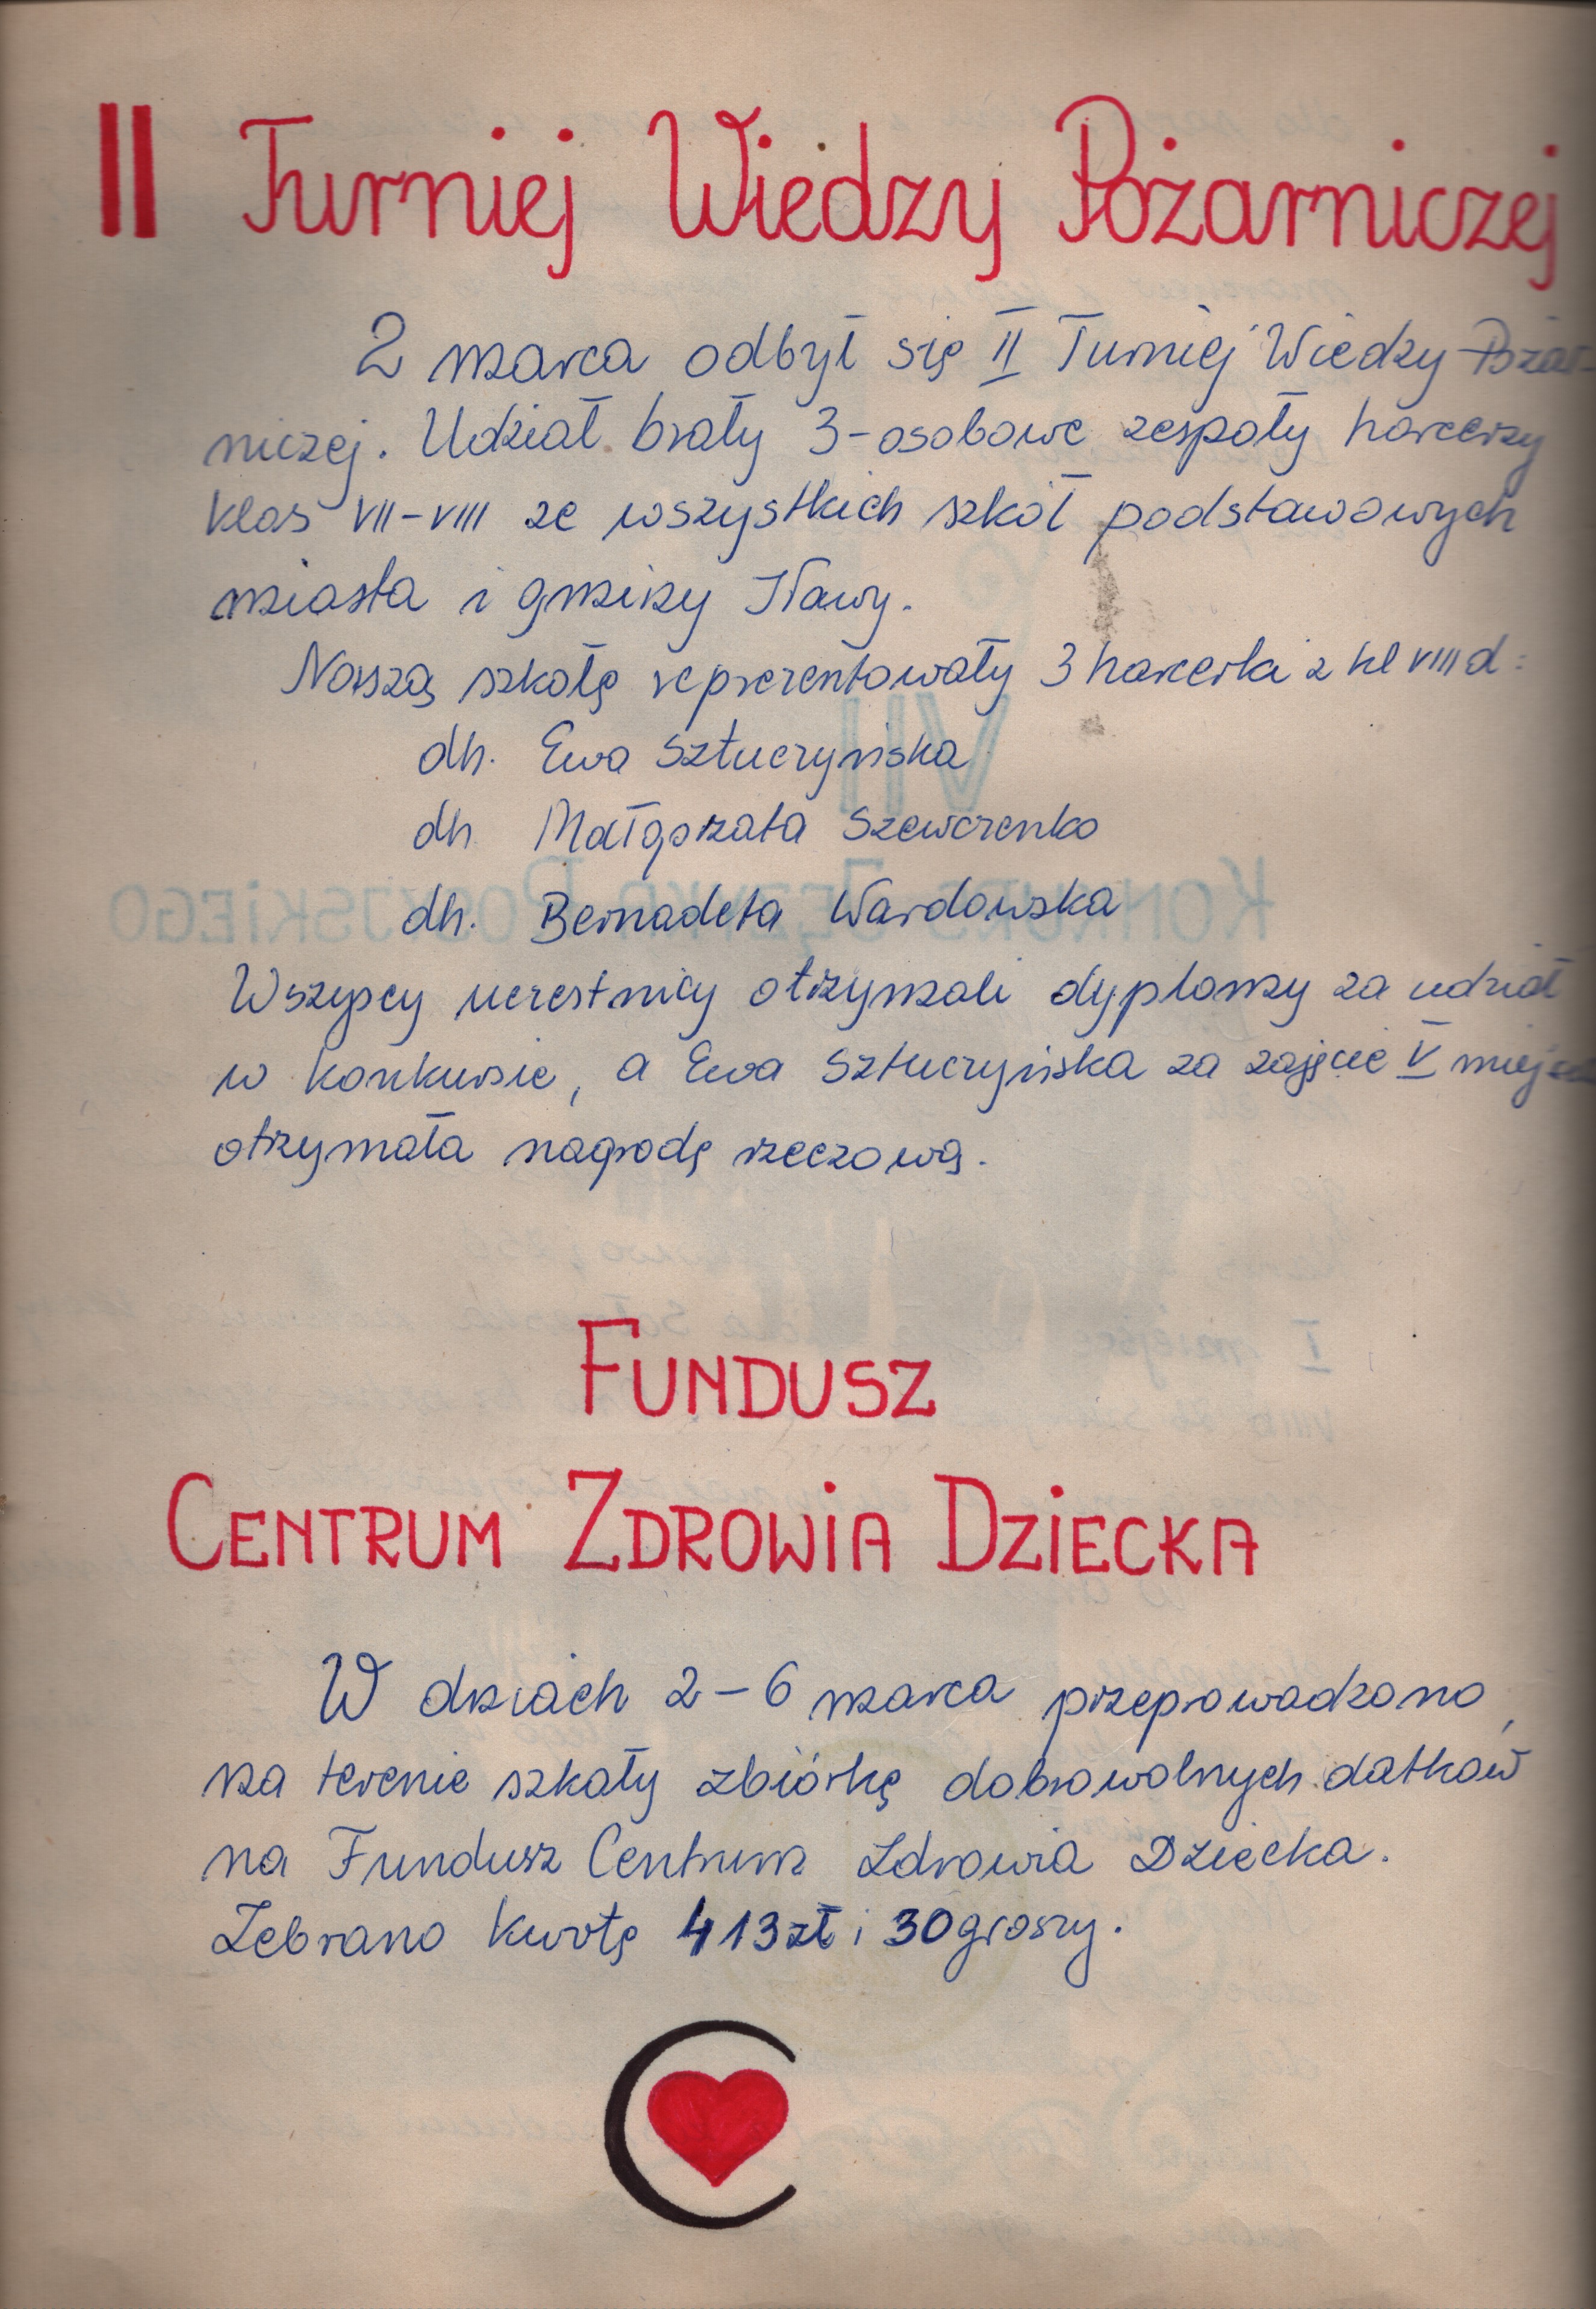 II Turniej Wiedzy Pożarniczej
2 marca odbył się II Turniej Wiedzy Pożar-
niczej. Udział brały 3-osobowe zespoły harcerzy
klas VII-VIII ze wszystkich szkół podstawowych
miasta i gminy Iławy.
Naszą szkołę reprezentowały 3 harcerki z kl VIII d:
dh. Ewa Sztuczyńska
dh Małgorzata Szewczenko
dh. Bernadeta Wardowska
Wszyscy uczestnicy otrzymali dyplomy za udział
w konkursie, a Ewa Sztuczyńska za zajęcie V
otrzymała nagrodę rzeczową.
FUNDUSZ
CENTRUM ZDROWIA DZIECKA
W dniach 2-6 marca przeprowadzono
na terenie szkoły zbiórkę dobrowolnych datków
na Fundusz Centrum Zdrowia Dziecka.
Zebrano kwotę 413zł i 30groszy.